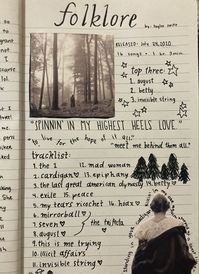 folklore
by: taylor swift
RELEASED: July 24, 2020
16 songs - 1 hr. 3min.
top three:
1. august
2. betty
3. invisible string
"SPINNIN' IN MY HIGHEST HEELS LOVE."
"to live for the hope of it all."
"meet me behind them all."
tracklist:
1. the 1
2. cardigan
3. the last great american dynasty
4. exile
5. my tears ricochet
6. mirrorball
7. seven
8. august
9. this is me trying
10. illicit affairs
11. invisible string
12. mad woman
13. epiphany
14. betty
15. peace
16. hoax